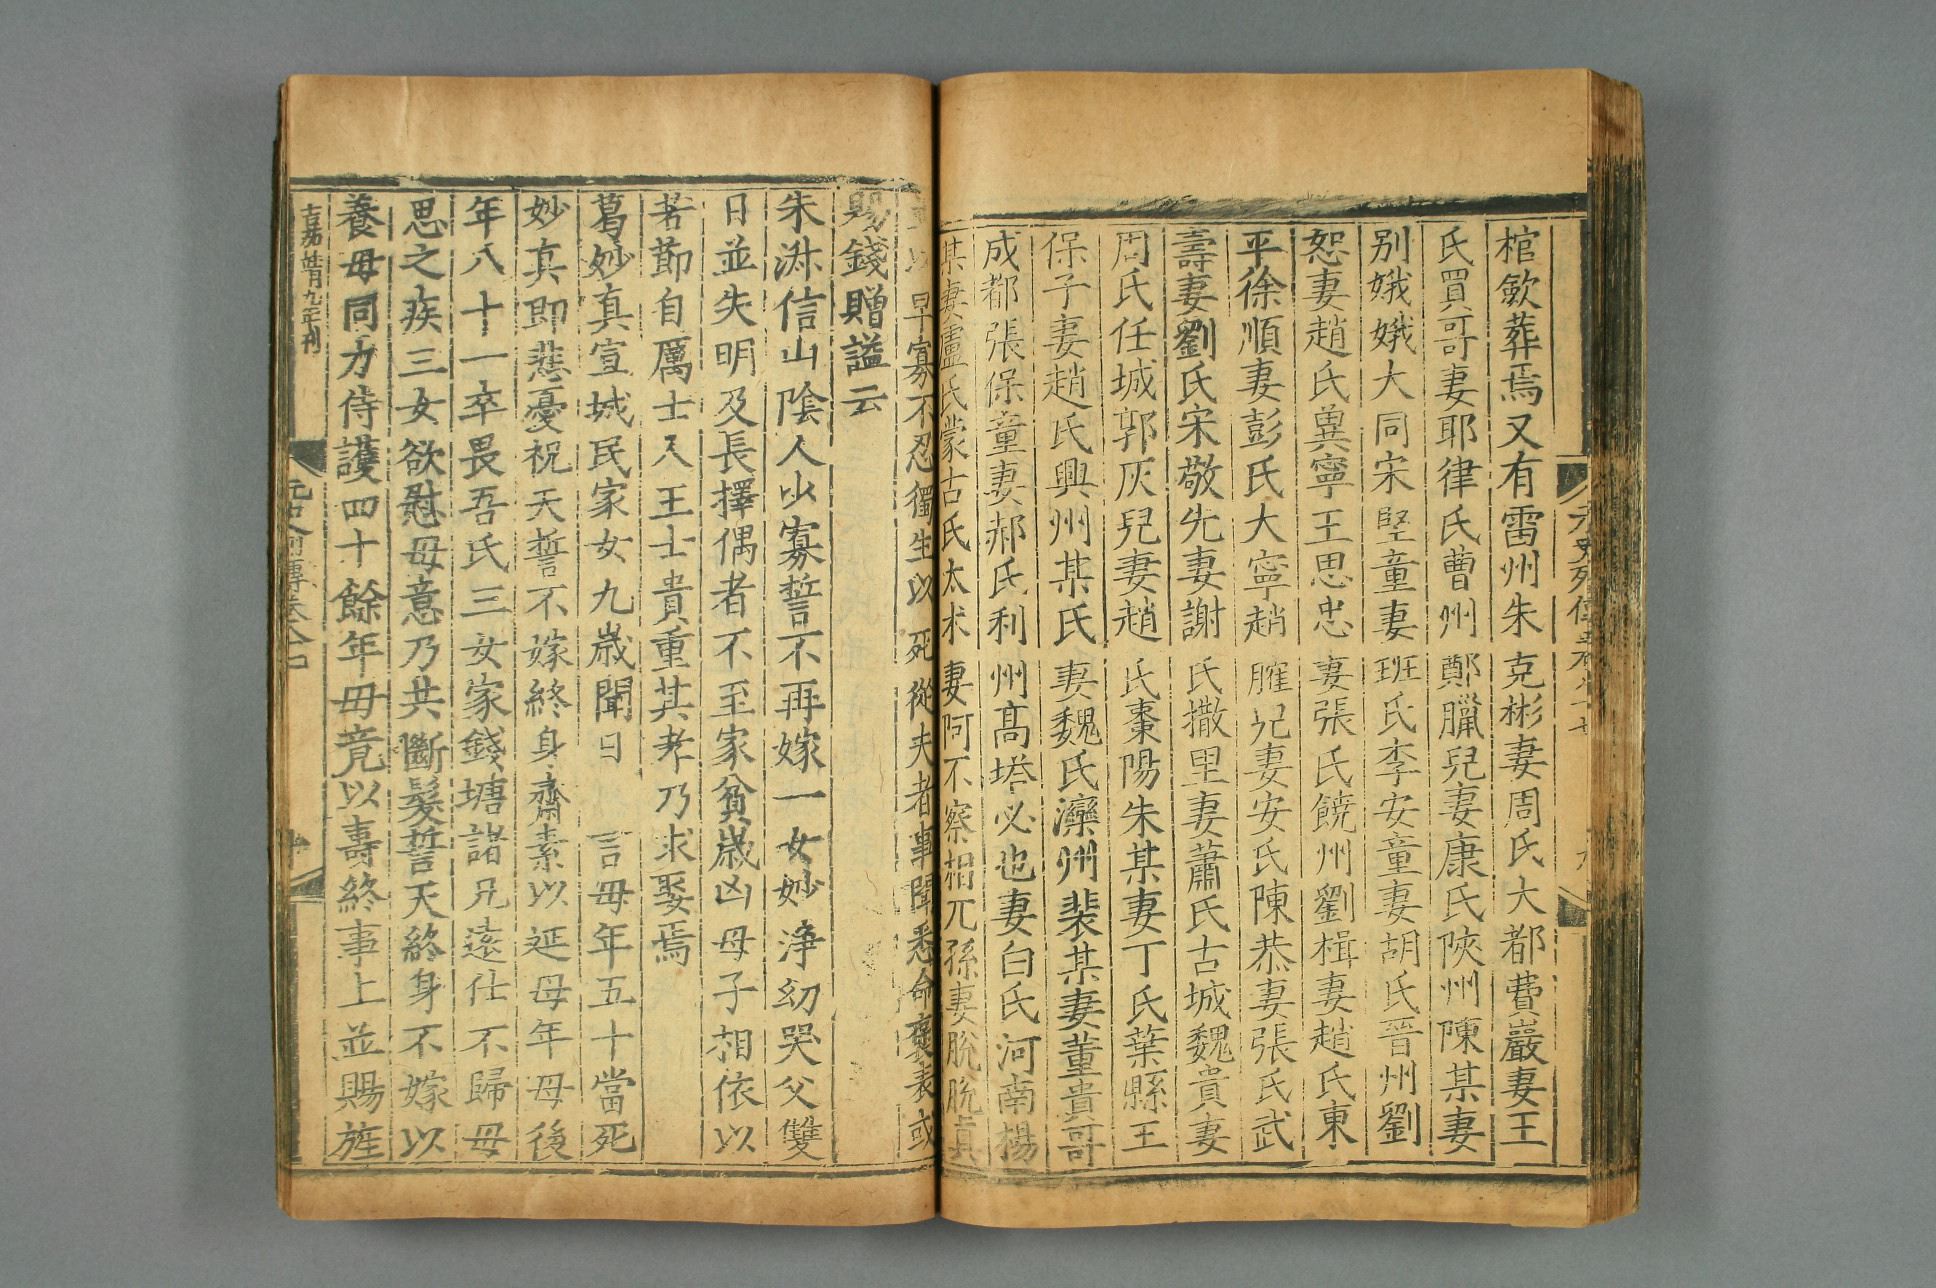 元史列傳卷八十七
九
棺歛葬焉又有雷州朱克彬妻周氏大都費巖妻王
氏買哥妻耶律氏曹州鄭臘兒妻康氏陝州陳某妻
别娥娥大同宋堅童妻班氏李安童妻胡氏晉州劉
恕妻趙氏冀寧王思忠妻張氏饒州劉楫妻趙氏東
平徐順妻彭氏大寧趙脽兒妻安氏陳恭妻張氏武
壽妻劉氏宋敬先妻謝氏撒里妻蕭氏古城魏貴妻
周氏任城郭灰兒妻趙氏棗陽朱某妻丁氏葉縣王
保子妻趙氏興州某氏妻魏氏灤州裴某妻董貴哥
成都張保童妻郝氏利州髙塔必也妻白氏河南楊
某妻盧氏蒙古氏太术妻阿不察相兀孫妻脫脫真
以早寡不忍獨生以死從夫者事聞悉命褒表或
賜錢贈謚云
朱淑信山陰人少寡誓不再嫁一女妙浄幼哭父雙
日並失明及長擇偶者不至家貧歲凶母子相依以
苦節自厲士人王士貴重其孝乃求娶焉
葛妙真宣城民家女九歲聞日 言母年五十當死
妙真即悲憂祝天誓不嫁終身齋素以延母年母後
年八十一卒畏吾氏三女家錢塘諸兄遠仕不歸母
思之疾三女欲慰母意乃共斷髮誓天終身不嫁以
養母同力侍護四十餘年母竟以壽終事上並賜旌
嘉靖九年刊
元史列傳卷八十
十